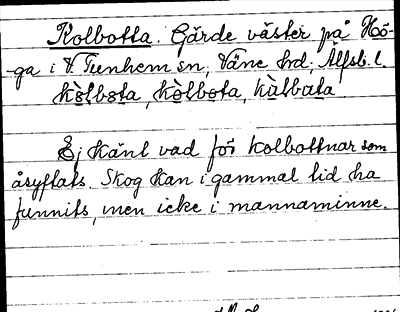 Kolbotta. Gärde väster på Höö-
-ga i V. Tunhem sn, Väne hd, Älfsb. l.
kòlbota, kòlbota, kùlbuta
Ej känt vad för kolbottnar som
åsyftats. Skog kan i gammal tid ha
funnits, men icke i mannaminne.